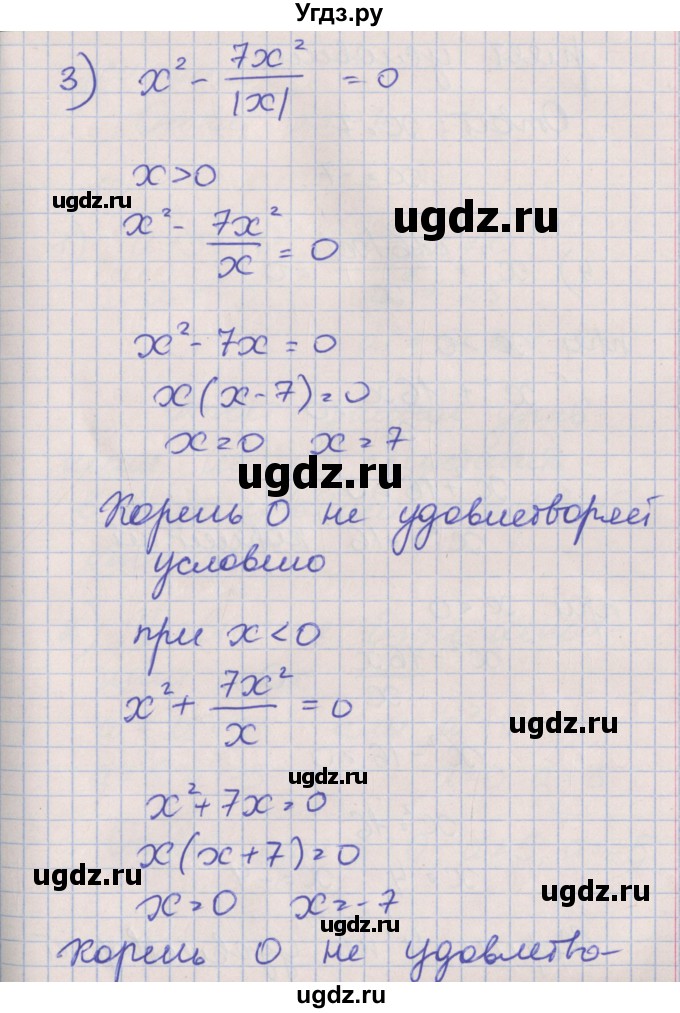 Угдз.ру
3) x² - 7x²/|x| = 0
x>0
ugdz.ru
ugdz.ru
x² - 7x²/x = 0
x² - 7x = 0
x(x-7)=0
x=0 x=7
ugdz.ru
Корень 0 не удовлетворяет
условию
при x<0
x² + 7x²/x = 0
ugdz.ru
ugdz.ru
x²+7x=0
x(x+7)=0
ugdz.ru
ugdz.ru
x=0 x=-7
ugdz.ru
Корень 0 не удовлетво-
ugdz.ru